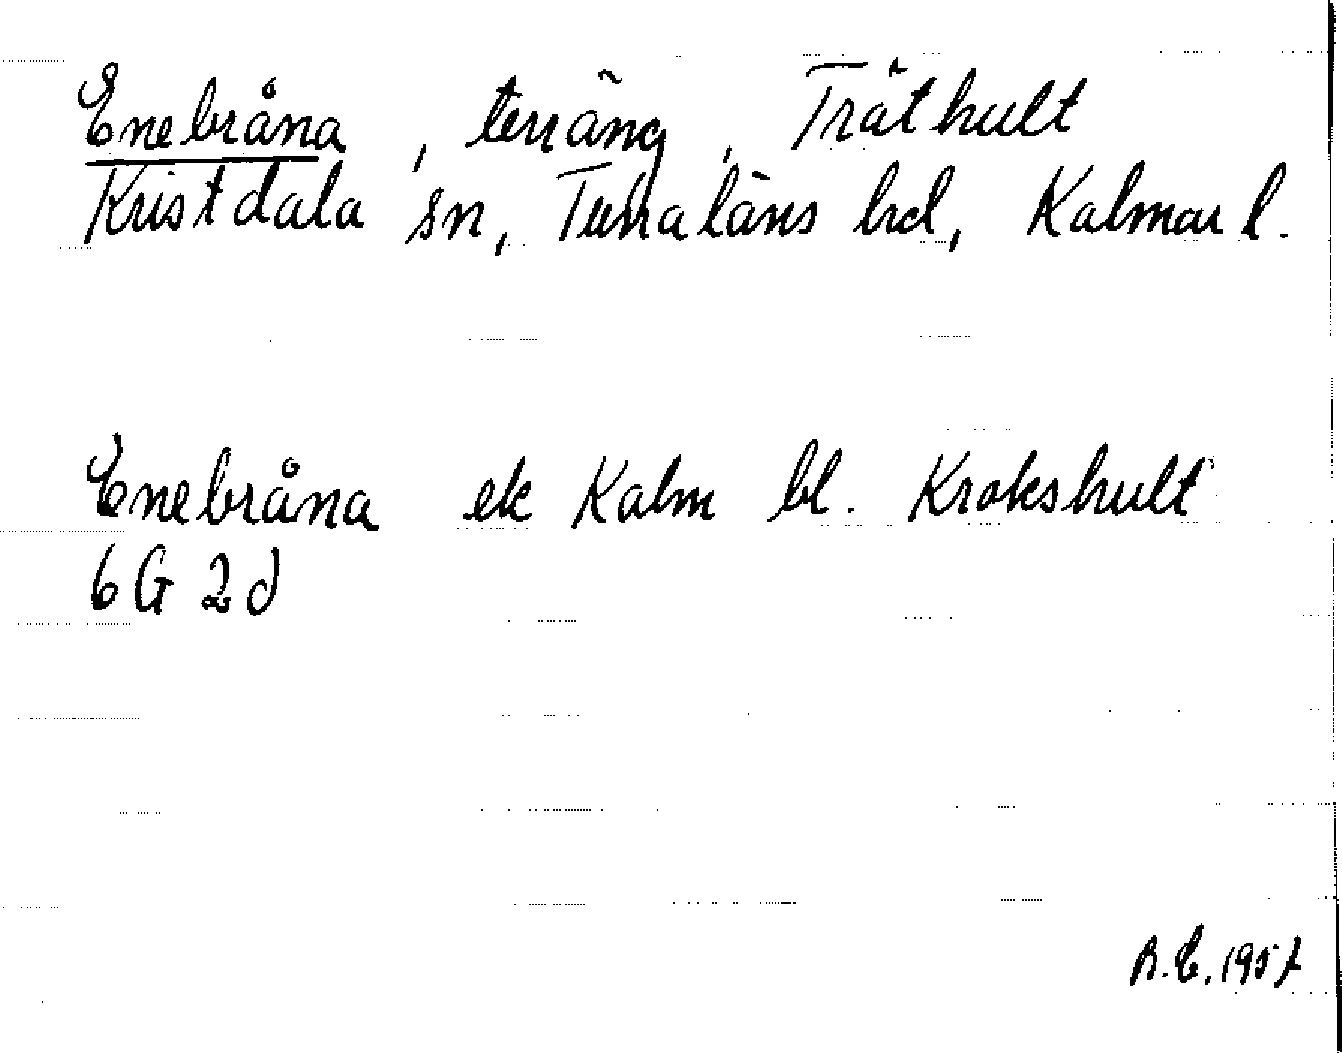 Enebråna, terräng, Tråthult
Kristdala sn, Tunaläns hd, Kalmar l.
Enebråna ek Kalm bl. Krokshult
6G 2d
R.E. 1957